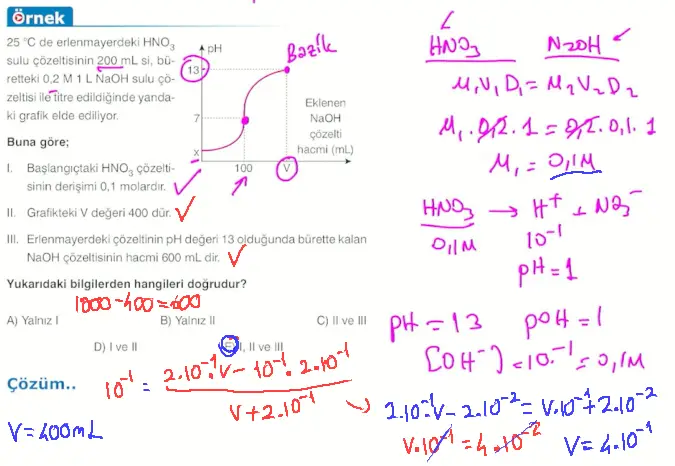 Örnek
25 °C de erlenmayerdeki HNO3
sulu çözeltisinin 200 mL si, bü-
retteki 0,2 M 1 L NaOH sulu çö-
zeltisi ile titre edildiğinde yanda-
ki grafik elde ediliyor.
pH
13
7
x
100
V
Eklenen
NaOH
çözelti
hacmi (mL)
Bazik
Buna göre;
I. Başlangıçtaki HNO3 çözelti-
sinin derişimi 0,1 molardır.
II. Grafikteki V değeri 400 dür.
III. Erlenmayerdeki çözeltinin pH değeri 13 olduğunda bürette kalan
NaOH çözeltisinin hacmi 600 mL dir.
Yukarıdaki bilgilerden hangileri doğrudur?
1000-400=600
A) Yalnız I
B) Yalnız II
C) II ve III
D) I ve II
E) I, II ve III
Çözüm..
10⁻¹ = 2.10⁻¹.V - 10⁻¹.2.10⁻¹
V+2.10⁻¹
V=400mL
HNO3 NaOH
M1V1D1 = M2V2D2
M1.0,2.1 = 0,2.0,1.1
M1 = 0,1M
HNO3 → H+ + NO3-
0,1M 10⁻¹
pH=1
pH=13 pOH=1
[OH-]=10⁻¹=0,1M
2.10⁻¹V-2.10⁻²=V.10⁻¹+2.10⁻²
V.10⁻¹=4.10⁻² V=4.10⁻¹